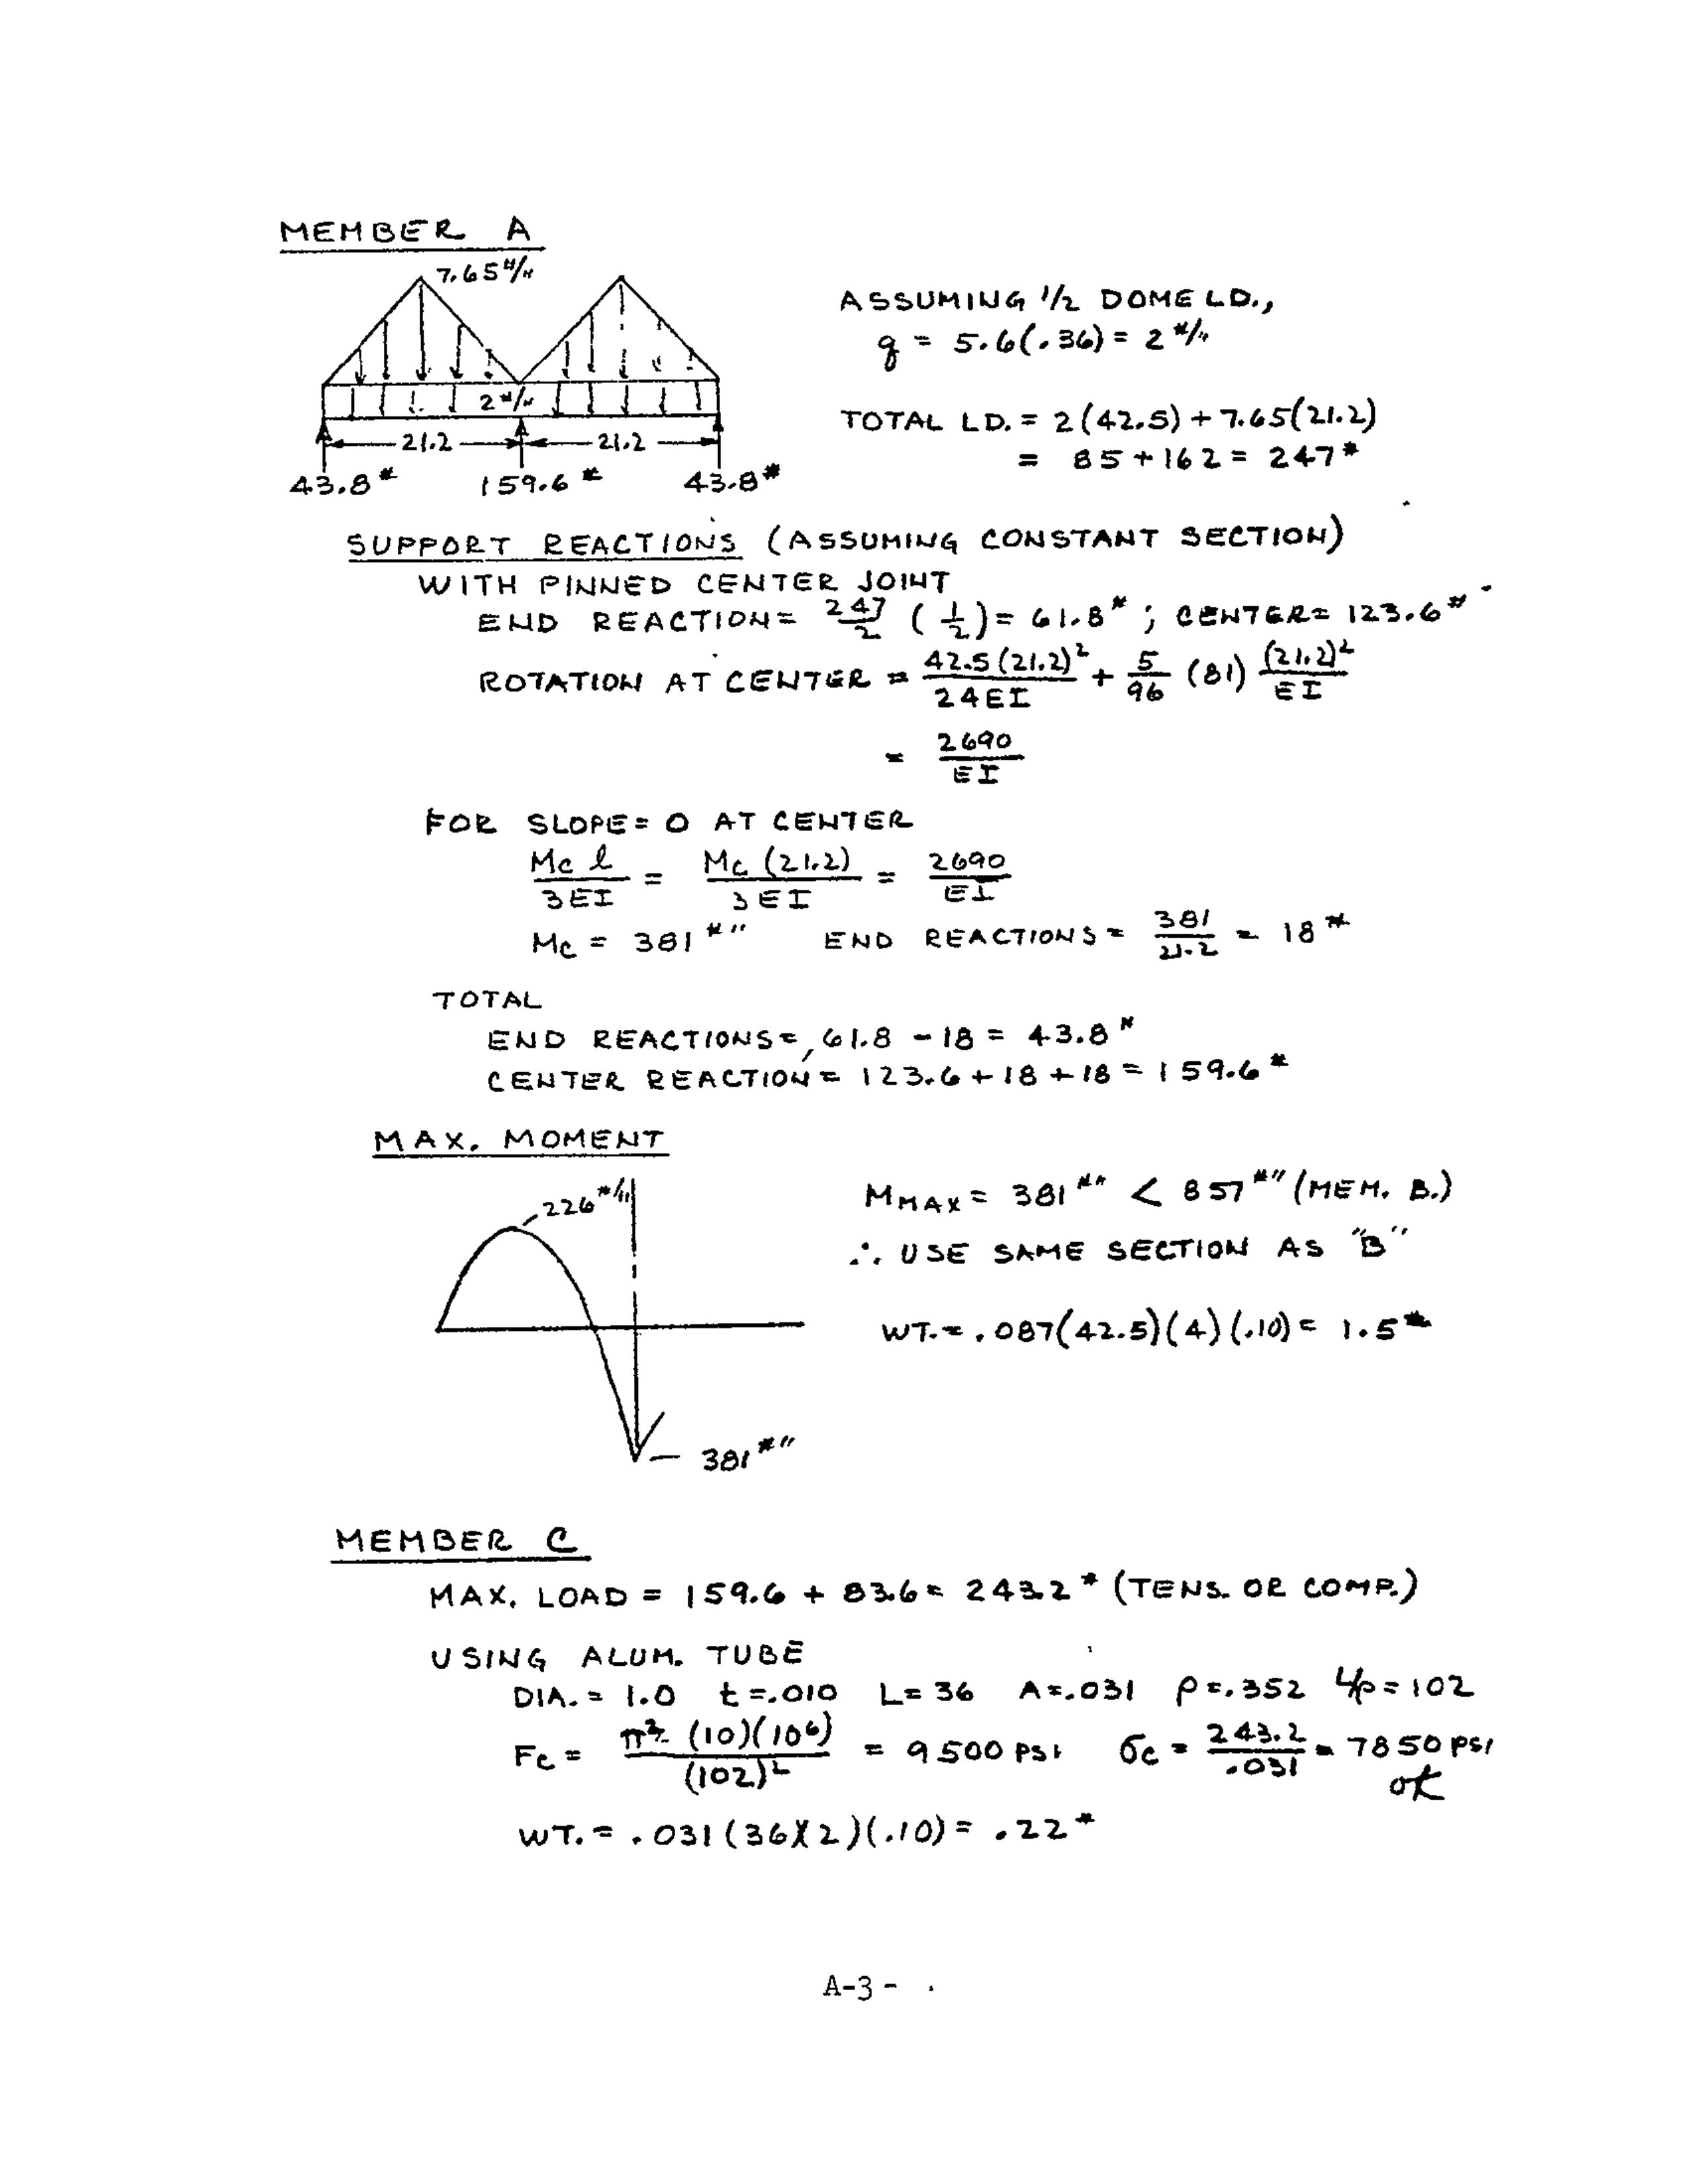 MEMBER A
7.65 #/"
ASSUMING 1/2 DOME LD.,
q = 5.6(.36) = 2 #/"
2 #/"
TOTAL LD. = 2(42.5) + 7.65(21.2)
21.2 21.2
= 85 + 162 = 247 #
43.8 # 159.6 # 43.8 #
SUPPORT REACTIONS (ASSUMING CONSTANT SECTION)
WITH PINNED CENTER JOINT
END REACTION = 247/2 (1/2) = 61.8 # ; CENTER = 123.6 #
ROTATION AT CENTER = 42.5(21.2)²/24EI + 5/96 (81) (21.2)²/EI
= 2690/EI
FOR SLOPE = 0 AT CENTER
Mc l/3EI = Mc (21.2)/3EI = 2690/EI
Mc = 381 #" END REACTIONS = 381/21.2 = 18 #
TOTAL
END REACTIONS = 61.8 - 18 = 43.8 #
CENTER REACTION = 123.6 + 18 + 18 = 159.6 #
MAX. MOMENT
226 #/"
M MAX = 381 #" < 857 #" (MEM. B.)
∴ USE SAME SECTION AS "B"
WT. = .087(42.5)(4)(.10) = 1.5 #
— 381 #"
MEMBER C
MAX. LOAD = 159.6 + 83.6 = 243.2 # (TENS. OR COMP.)
USING ALUM. TUBE
DIA. = 1.0 t = .010 L = 36 A = .031 ρ = .352 L/ρ = 102
Fc = π² (10)(10⁶)/(102)² = 9500 PSI σc = 243.2/.031 = 7850 PSI
OK
WT. = .031(36)(2)(.10) = .22 #
A-3 -